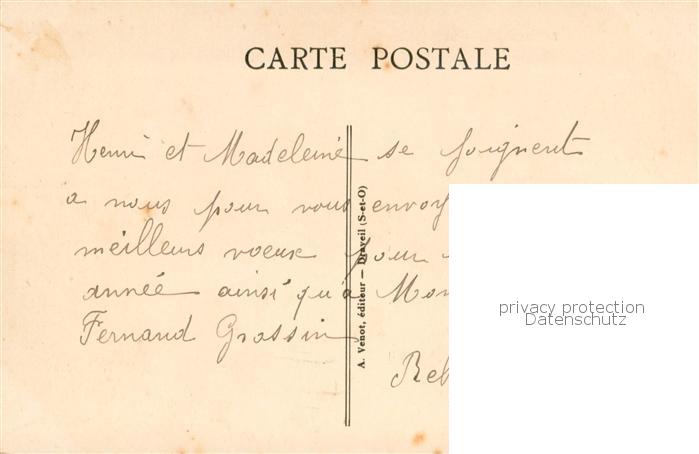 CARTE POSTALE
Henri et Madeleine se joignent
a nous pour vous envoy
meilleurs voeux pour
année ainsi qu'a Mon
Fernand Grossin
Reb
A. Venot, éditeur — Draveil (S-et-O)
privacy protection
Datenschutz